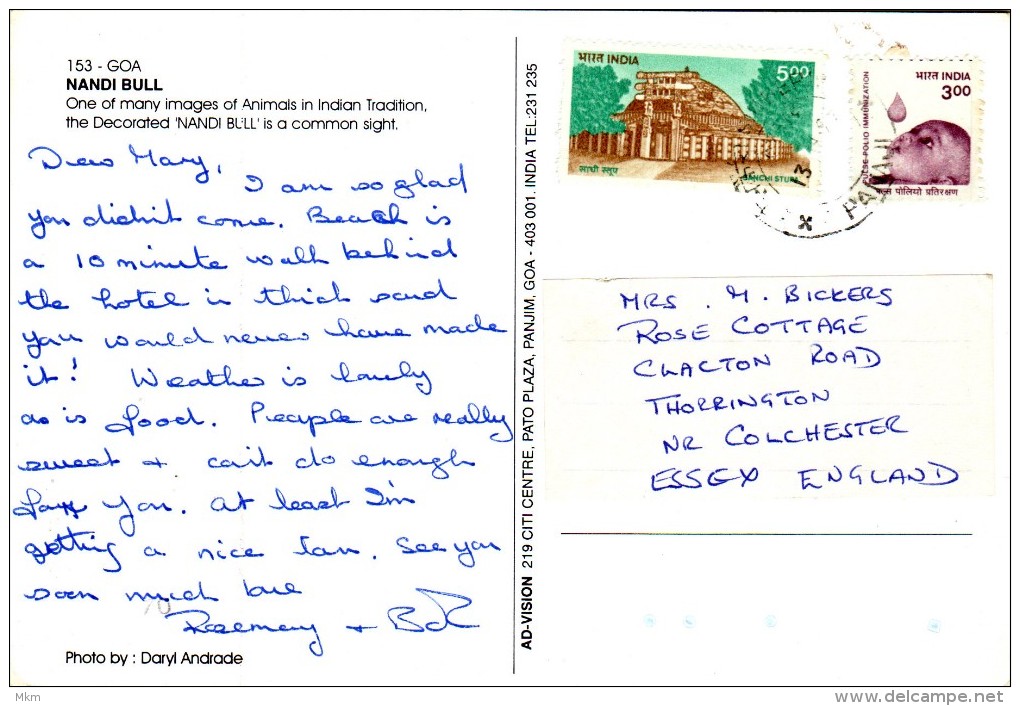 153 - GOA
NANDI BULL
One of many images of Animals in Indian Tradition,
the Decorated 'NANDI BULL' is a common sight.
Dear Mary,
I am so glad
you didn't come. Beach is
a 10 minute walk behind
the hotel in thick sand
you would never have made
it! Weather is lovely
as is food. People are really
sweet + can't do enough
for you. At least I'm
getting a nice tan. See you
soon much love
Rosemary + Bob
Photo by : Daryl Andrade
AD-VISION 219 CITI CENTRE, PATO PLAZA, PANJIM, GOA - 403 001. INDIA TEL:231 235
भारत INDIA
5.00
साँची स्तूप
SANCHI STUPA
भारत INDIA
3.00
PULSE-POLIO IMMUNIZATION
पल्स पोलियो प्रतिरक्षण
13
PANAJI
MRS. M. BICKERS
ROSE COTTAGE
CLACTON ROAD
THORRINGTON
NR COLCHESTER
ESSEX ENGLAND
Mkm
delcampe.net